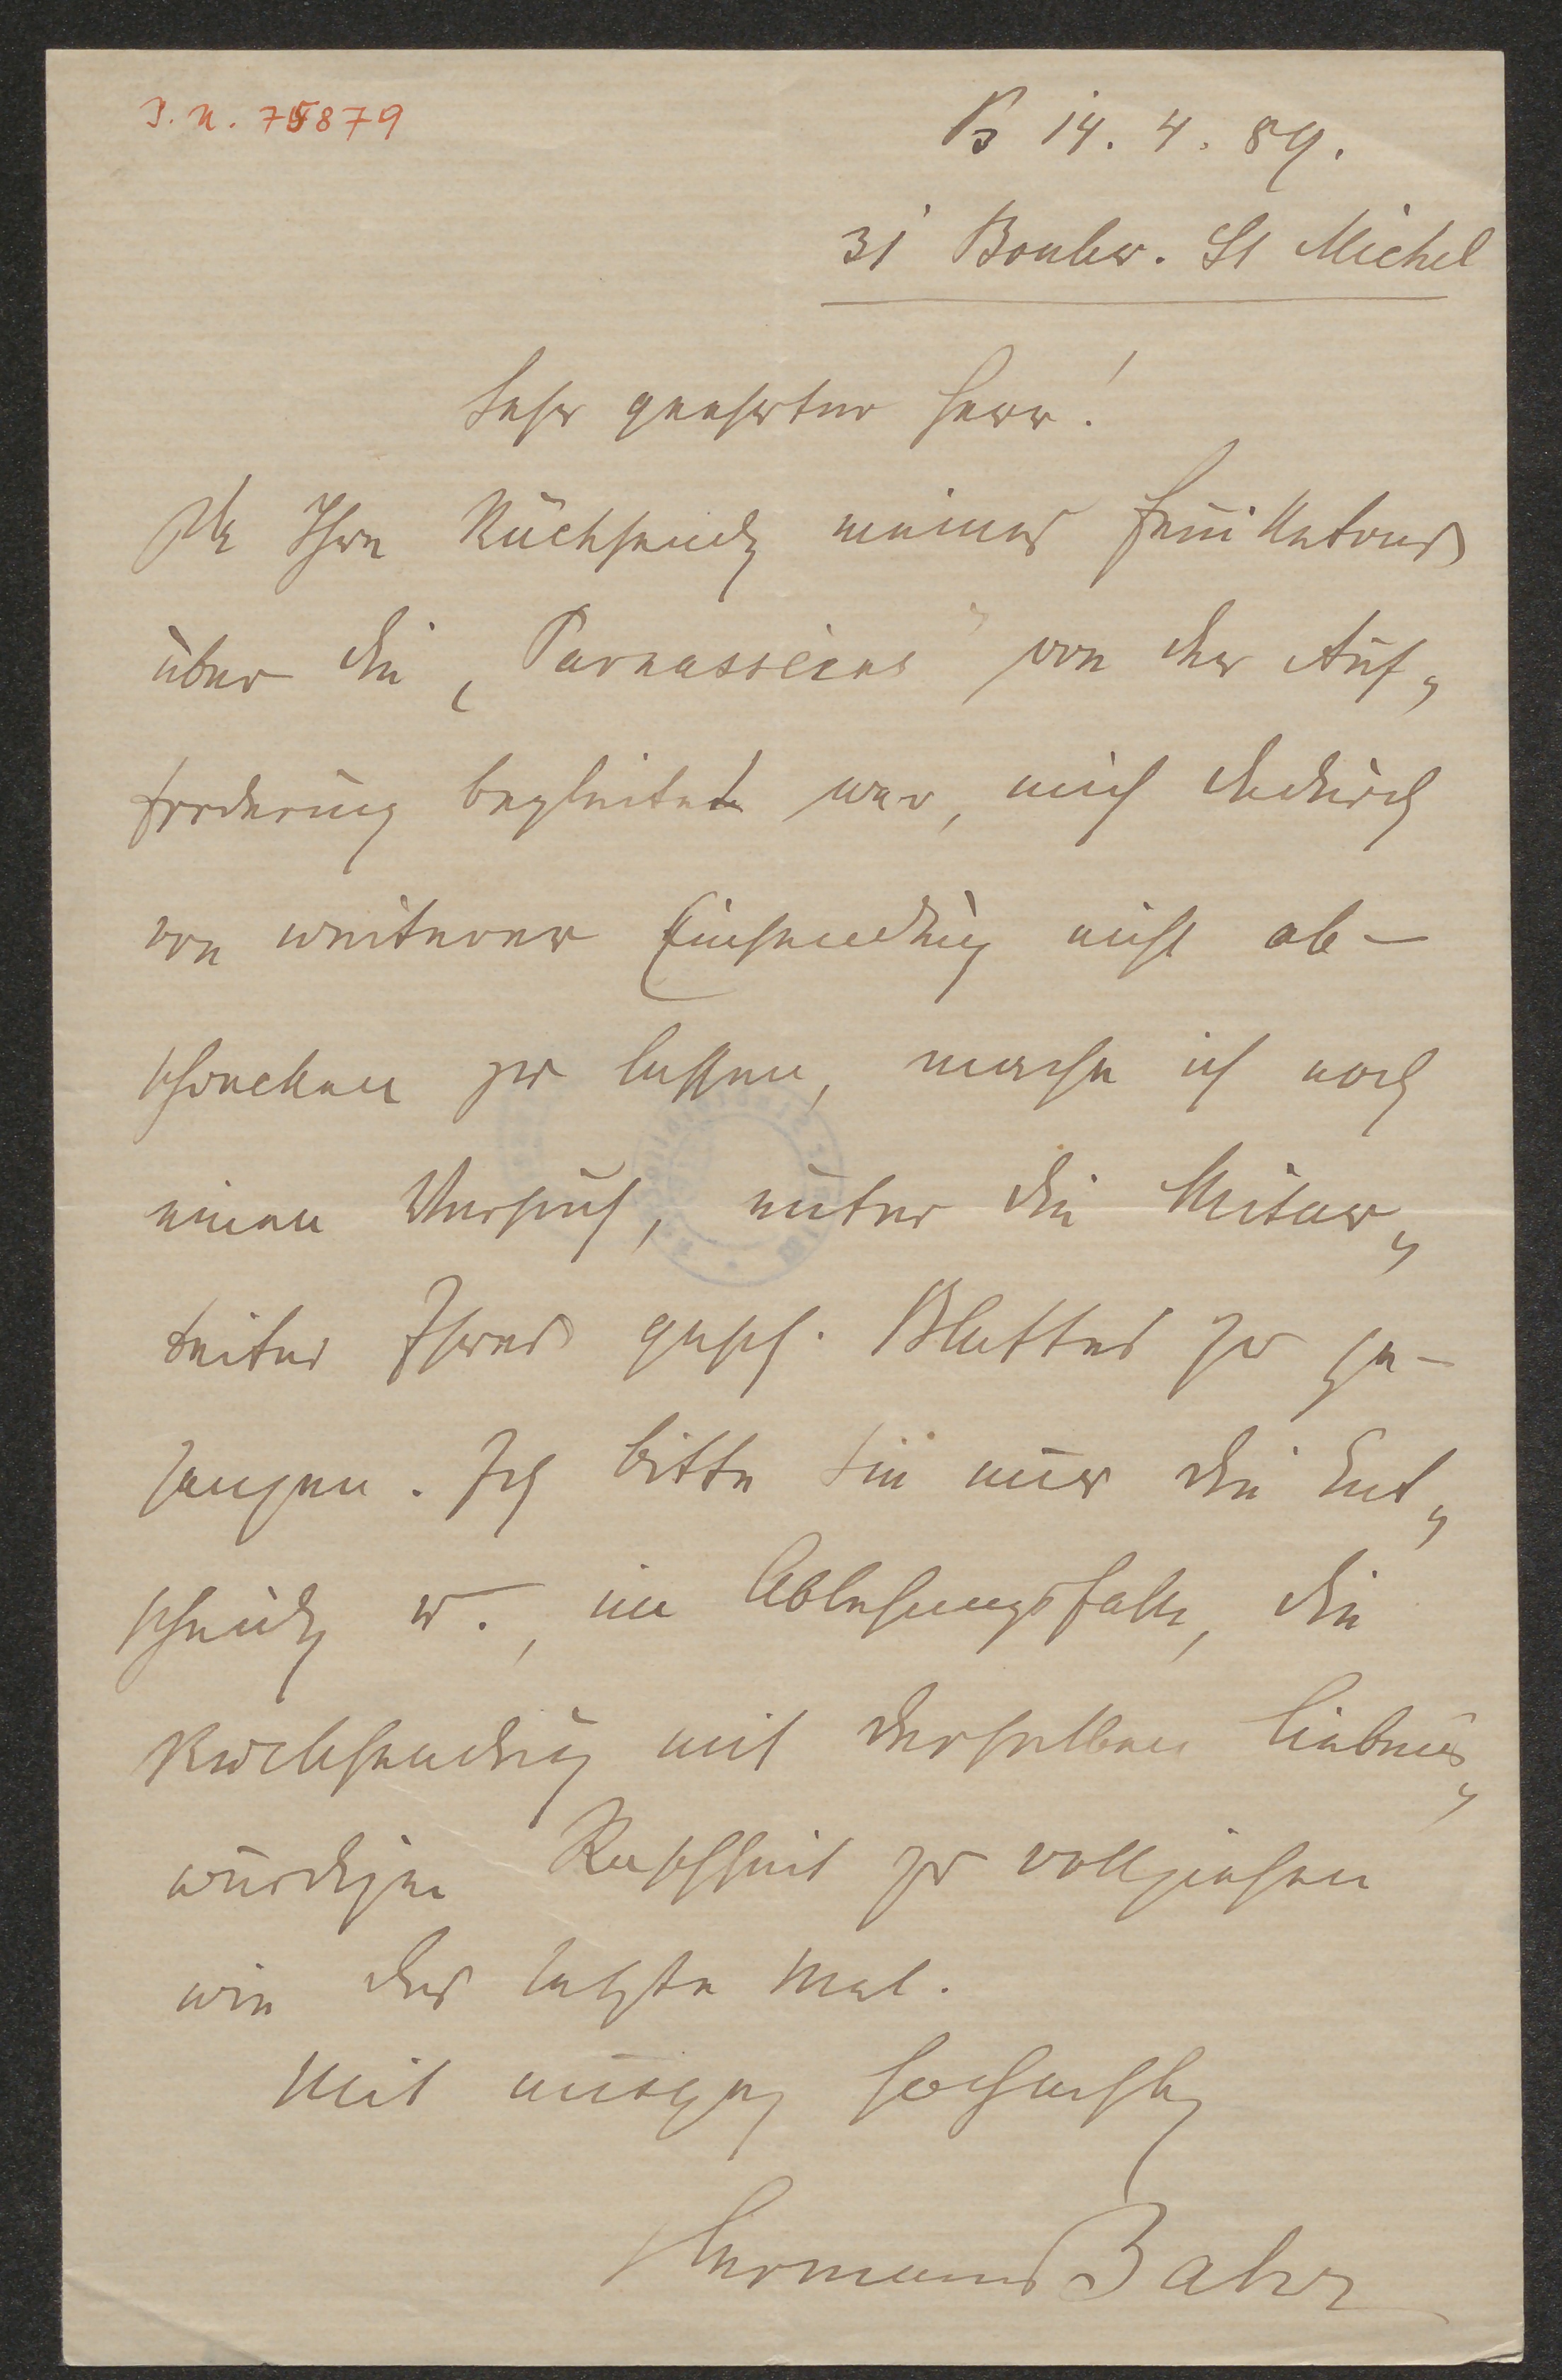 I. N. 75879
P 14. 4. 89.
31 Boulev. St Michel
Sehr geehrter Herr!
Da Ihre Rücksendg meines Feuilletons
über die „Parnassiens“ von der Auf„
forderung begleitet war, mich dadurch
von weiterer Einsendung nicht ab-
schrecken zu lassen, mache ich noch
einen Versuch, unter die Mitar„
beiter Ihres gesch. Blattes zu ge-
langen. Ich bitte Sie nur die Ent„
scheidg u., im Ablehnungsfalle, die
Rücksendung mit derselben liebens„
würdigen Raschheit zu vollziehen
wie das letzte Mal.
Mit ausgez Hochachtg
Hermann Bahr